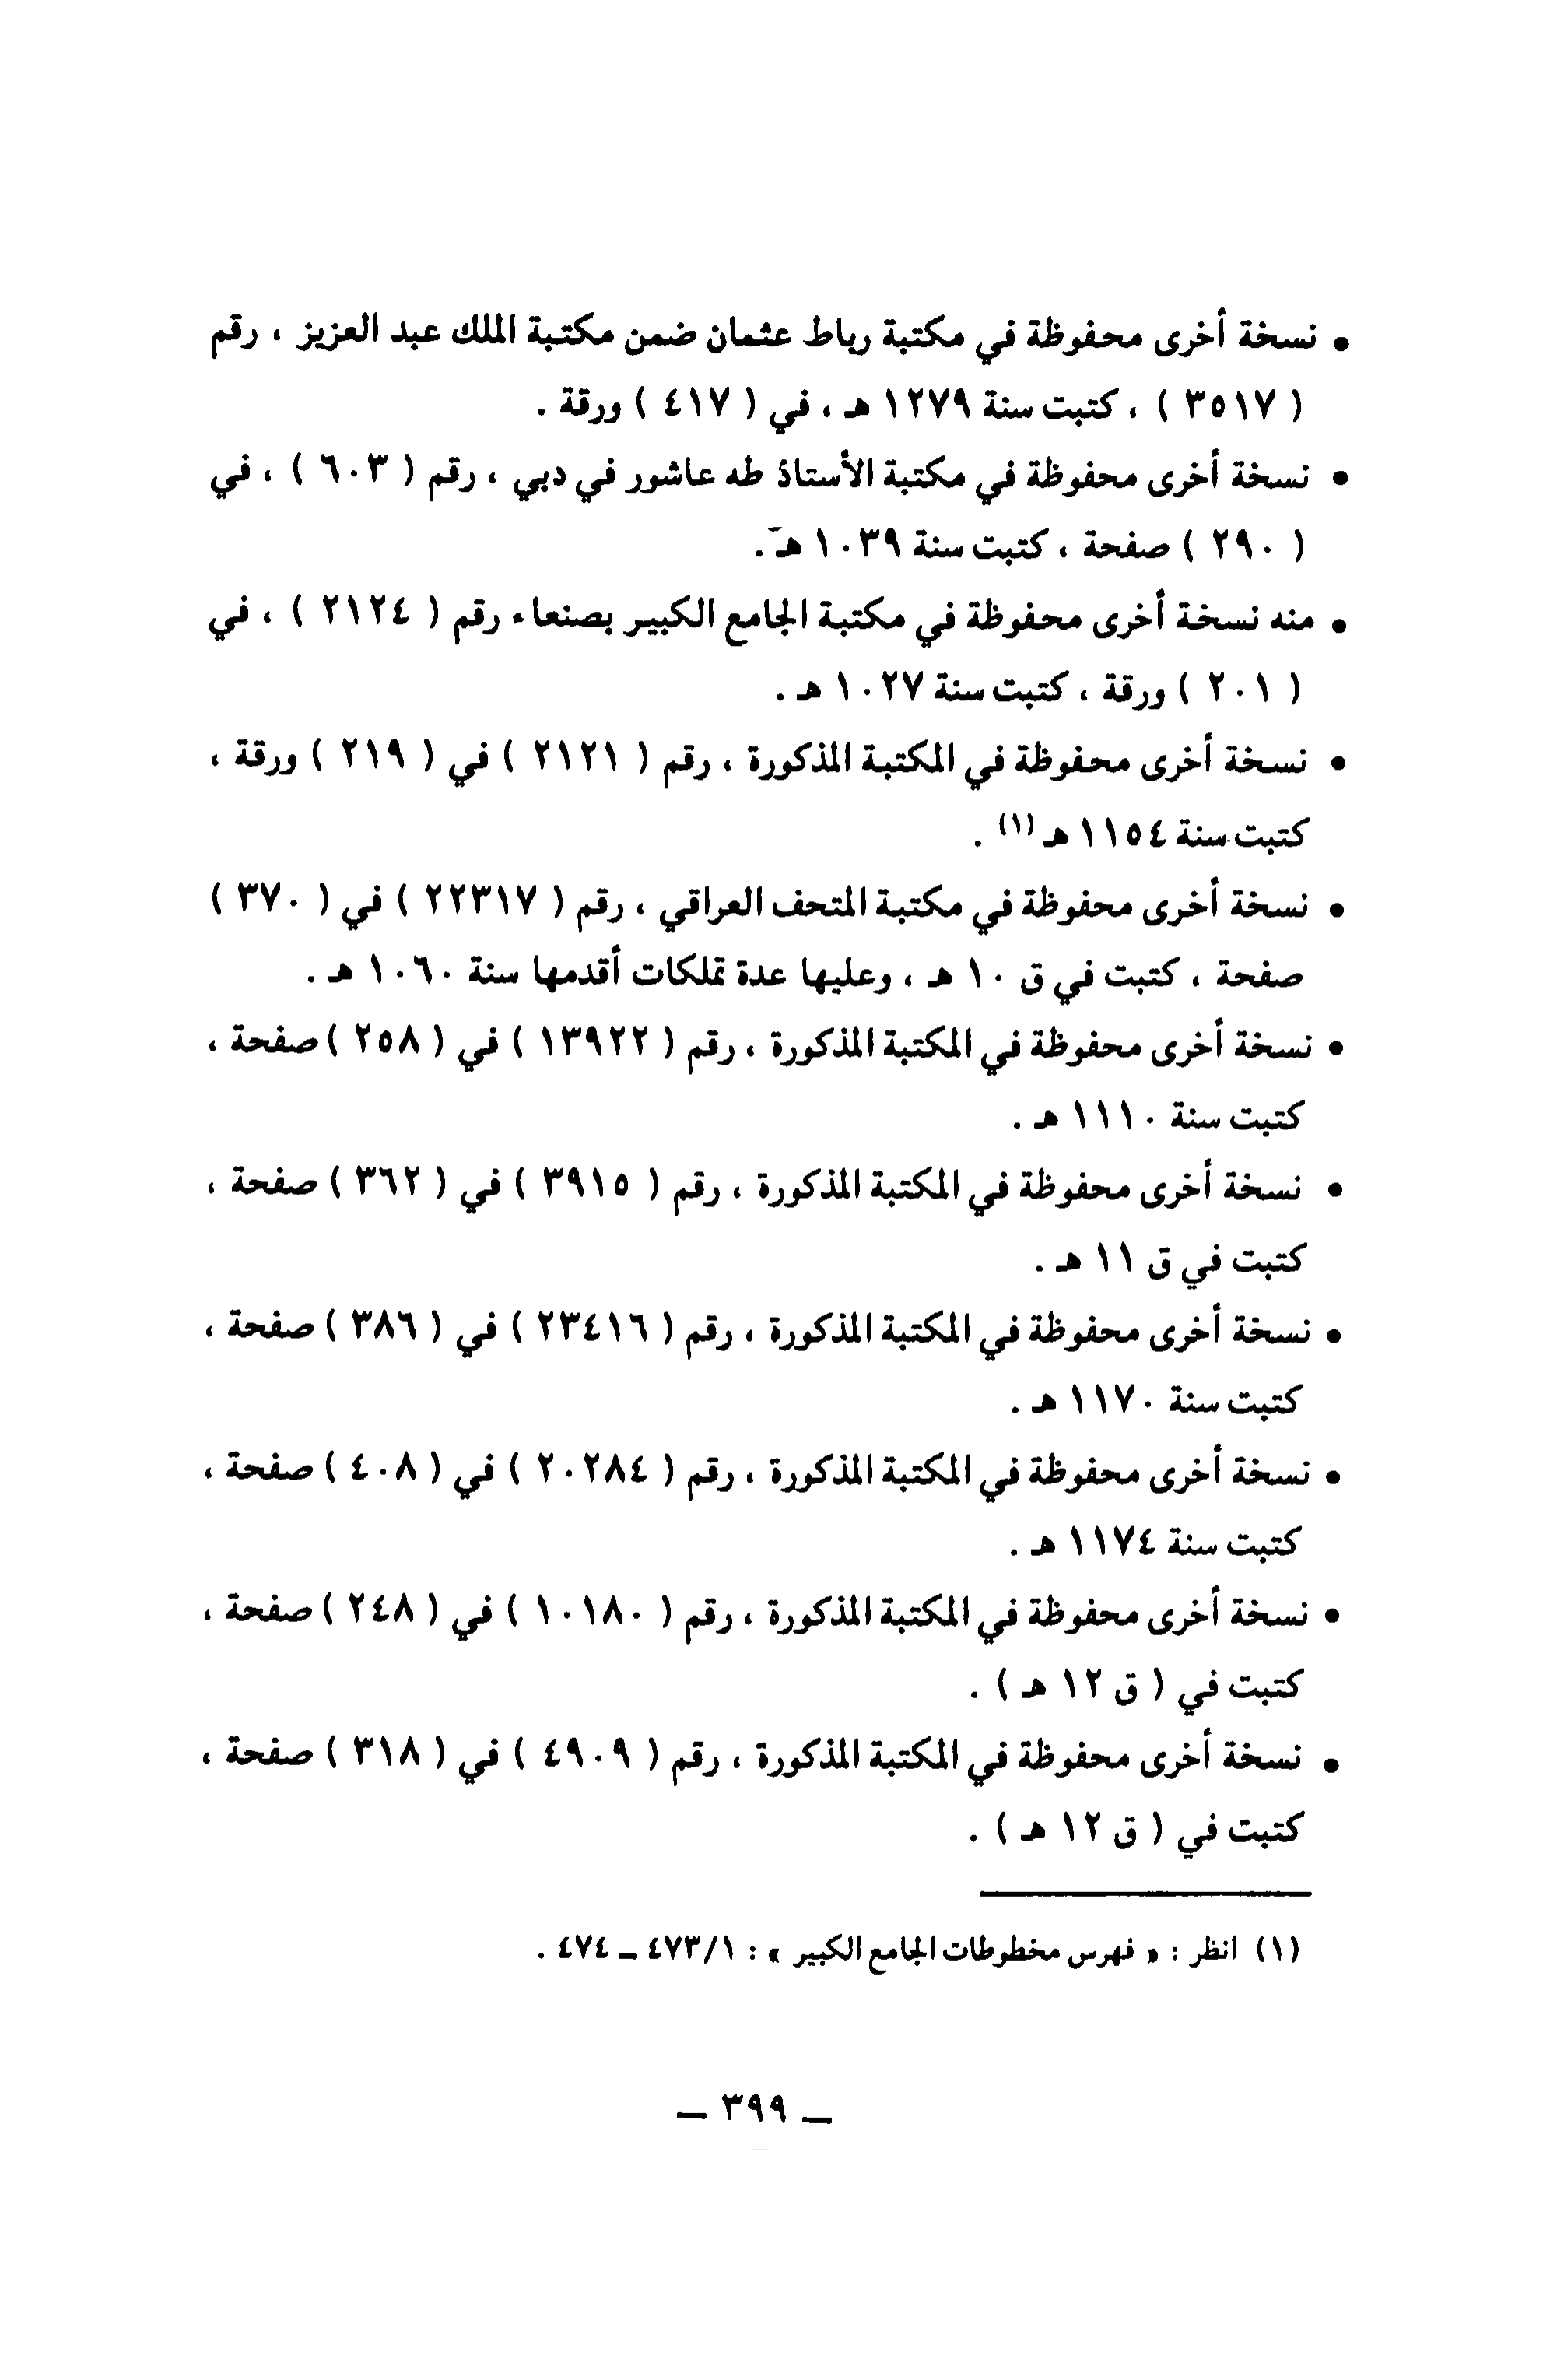 • نسخة أخرى محفوظة في مكتبة رباط عثمان ضمن مكتبة الملك عبد العزيز ، رقم
( ٣٥١٧ ) ، كتبت سنة ١٢٧٩ هـ ، في ( ٤١٧ ) ورقة .
• نسخة أخرى محفوظة في مكتبة الأستاذ طه عاشور في دبي ، رقم ( ٦٠٣ ) ، في
( ٢٩٠ ) صفحة ، كتبت سنة ١٠٣٩ هـ .
• منه نسخة أخرى محفوظة في مكتبة الجامع الكبير بصنعاء رقم ( ٢١٢٤ ) ، في
( ٢٠١ ) ورقة ، كتبت سنة ١٠٢٧ هـ .
• نسخة أخرى محفوظة في المكتبة المذكورة ، رقم ( ٢١٢١ ) في ( ٢١٩ ) ورقة ،
كتبت سنة ١١٥٤ هـ (١) .
• نسخة أخرى محفوظة في مكتبة المتحف العراقي ، رقم ( ٢٢٣١٧ ) في ( ٣٧٠ )
صفحة ، كتبت في ق ١٠ هـ ، وعليها عدة تملكات أقدمها سنة ١٠٦٠ هـ .
• نسخة أخرى محفوظة في المكتبة المذكورة ، رقم ( ١٣٩٢٢ ) في ( ٢٥٨ ) صفحة ،
كتبت سنة ١١١٠ هـ .
• نسخة أخرى محفوظة في المكتبة المذكورة ، رقم ( ٣٩١٥ ) في ( ٣٦٢ ) صفحة ،
كتبت في ق ١١ هـ .
• نسخة أخرى محفوظة في المكتبة المذكورة ، رقم ( ٢٣٤١٦ ) في ( ٣٨٦ ) صفحة ،
كتبت سنة ١١٧٠ هـ .
• نسخة أخرى محفوظة في المكتبة المذكورة ، رقم ( ٢٠٢٨٤ ) في ( ٤٠٨ ) صفحة ،
كتبت سنة ١١٧٤ هـ .
• نسخة أخرى محفوظة في المكتبة المذكورة ، رقم ( ١٠١٨٠ ) في ( ٢٤٨ ) صفحة ،
كتبت في ( ق ١٢ هـ ) .
• نسخة أخرى محفوظة في المكتبة المذكورة ، رقم ( ٤٩٠٩ ) في ( ٣١٨ ) صفحة ،
كتبت في ( ق ١٢ هـ ) .
(١) انظر : « فهرس مخطوطات الجامع الكبير » : ٤٧٣/١ ـ ٤٧٤ .
ـ ٣٩٩ ـ